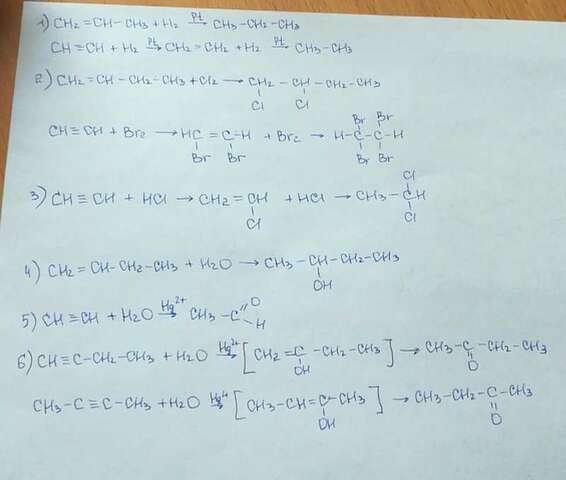 1) CH2=CH-CH3 + H2 Pt→ CH3-CH2-CH3
CH≡CH + H2 Pt→ CH2=CH2 + H2 Pt→ CH3-CH3
2) CH2=CH-CH2-CH3 + Cl2 → CH2-CH-CH2-CH3
Cl Cl
Br Br
CH≡CH + Br2 → HC=C-H + Br2 → H-C-C-H
Br Br Br Br
Cl
3) CH≡CH + HCl → CH2=CH + HCl → CH3-CH
Cl Cl
4) CH2=CH-CH2-CH3 + H2O → CH3-CH-CH2-CH3
OH
5) CH≡CH + H2O Hg2+→ CH3-C=O
H
6) CH≡C-CH2-CH3 + H2O Hg2+→ [CH2=C-CH2-CH3] → CH3-C-CH2-CH3
OH O
CH3-C≡C-CH3 + H2O → [CH3-CH=C-CH3] → CH3-CH2-C-CH3
OH O